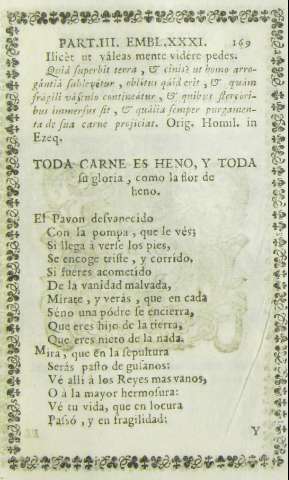 PART.III. EMBL.XXXI. 169
Ilicèt ut váleas mente vidére pedes.
Quid superbit terra, & cinis ut homo arro-
gántia sublevétur, oblítus quid erit, & quàm
frágili vásculo contineátur, & quibus stercóri-
bus immérsus sit, & quália semper purgamen-
ta de sua carne projíciat. Orig. Homil. in
Ezeq.
TODA CARNE ES HENO, Y TODA
su gloria, como la flor de
heno.
El Pavon desvanecido
Con la pompa, que le ves;
Si llega à verse los pies,
Se encoge triste, y corrido,
Si fueres acometido
De la vanidad malvada,
Mirate, y veràs, que en cada
Seno una pódre se encierra,
Que eres hijo de la tierra,
Que eres nieto de la nada.
Mira, que en la sepultura
Serás pasto de gusanos:
Vé alli à los Reyes mas vanos,
O à la mayor hermosura:
Vé tu vida, que en locura
Passó, y en fragilidad:
Y